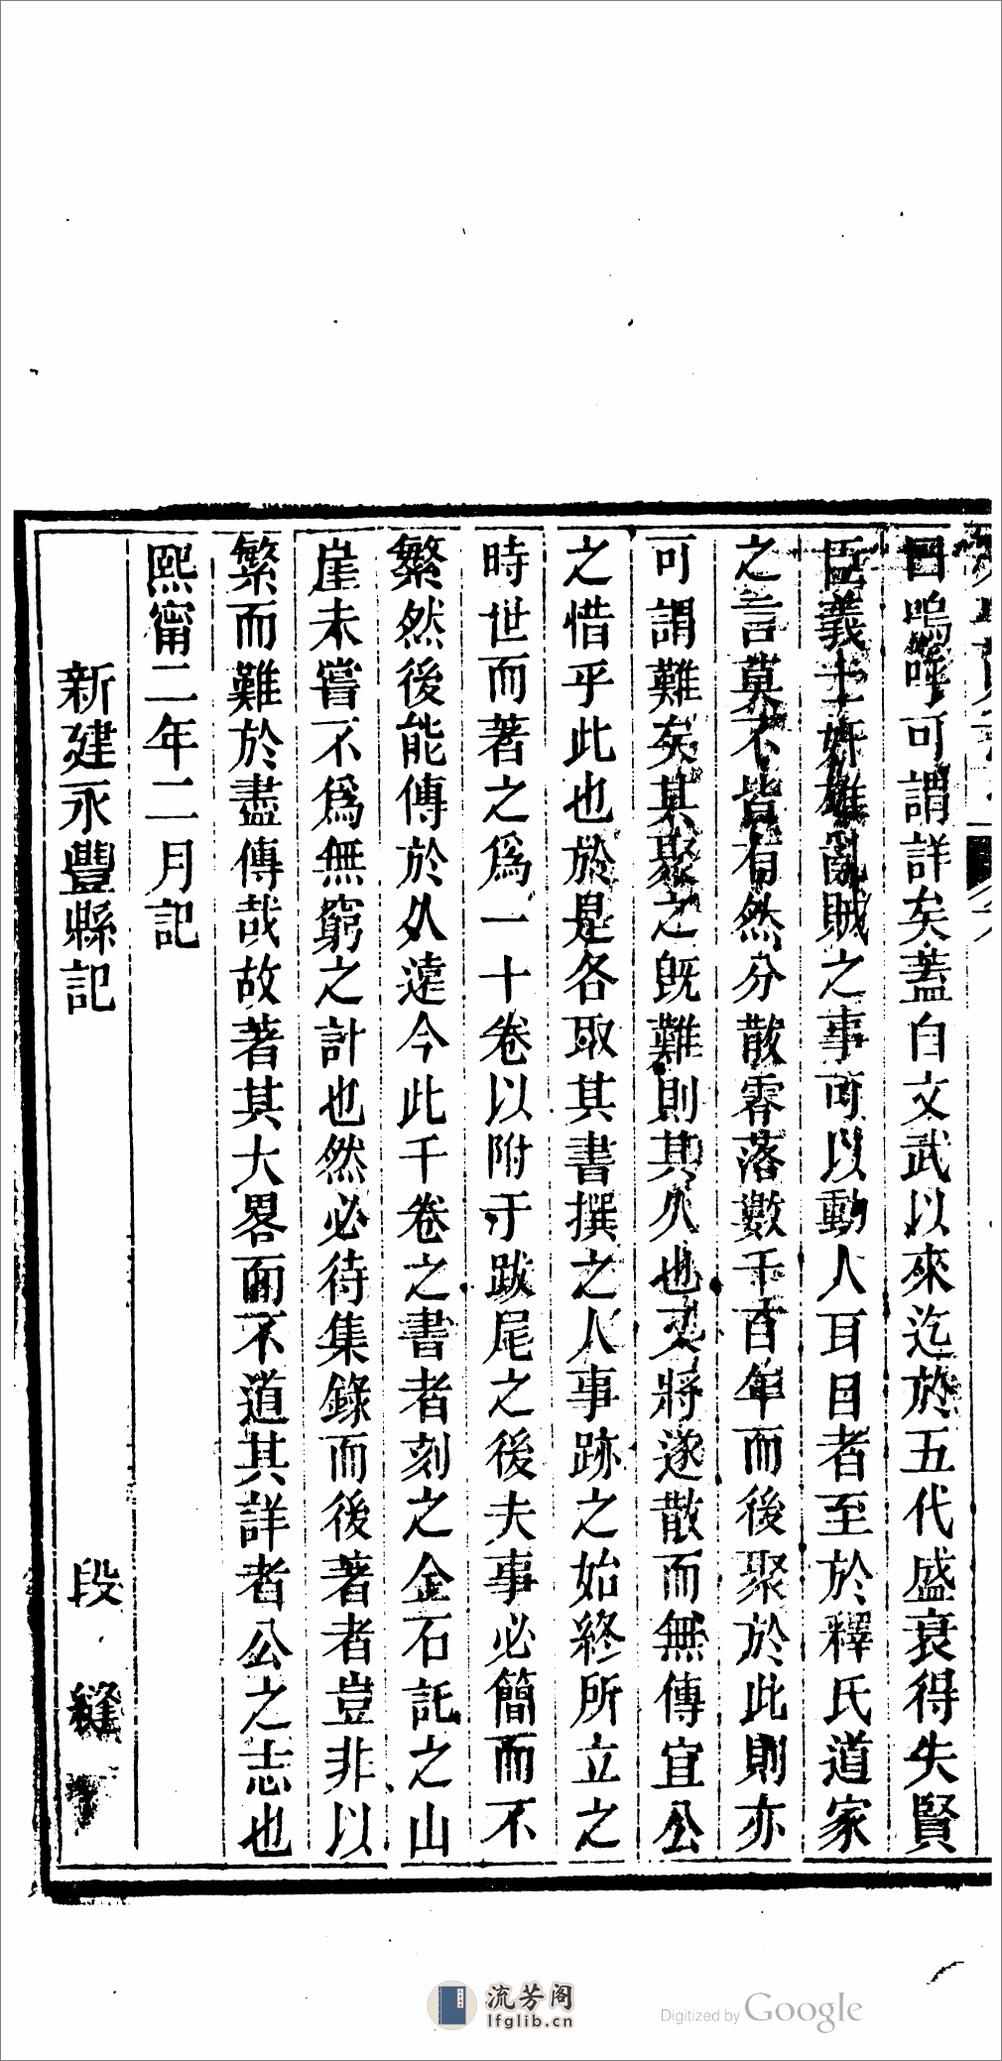 曰嗚呼可謂詳矣蓋自文武以來迄於五代盛衰得失賢
臣義士姧雄亂賊之事可以動人耳目者至於釋氏道家
之言莫不皆有然分散零落數千百年而後聚於此則亦
可謂難矣其聚之既難則其久也又將遂散而無傳宜公
之惜乎此也於是各取其書撰之人事跡之始終所立之
時世而著之爲一十卷以附于跋尾之後夫事必簡而不
繁然後能傳於久遠今此千卷之書者刻之金石託之山
崖未嘗不爲無窮之計也然必待集錄而後著者豈非以
繁而難於盡傳哉故著其大畧而不道其詳者公之志也
熙甯二年二月記
新建永豐縣記
段 縫
流芳阁
lfglib.cn
Digitized by Google